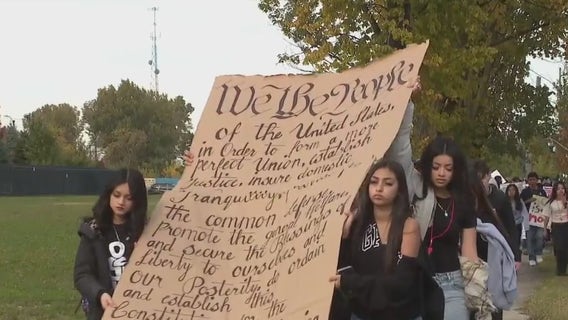 We The People
of the United States,
in Order to form a more
perfect Union, establish
Justice, insure domestic
the common defense,
promote the general Welfare,
and secure the Blessings of
Liberty to ourselves and
our Posterity, do ordain
and establish this
Constitution for the